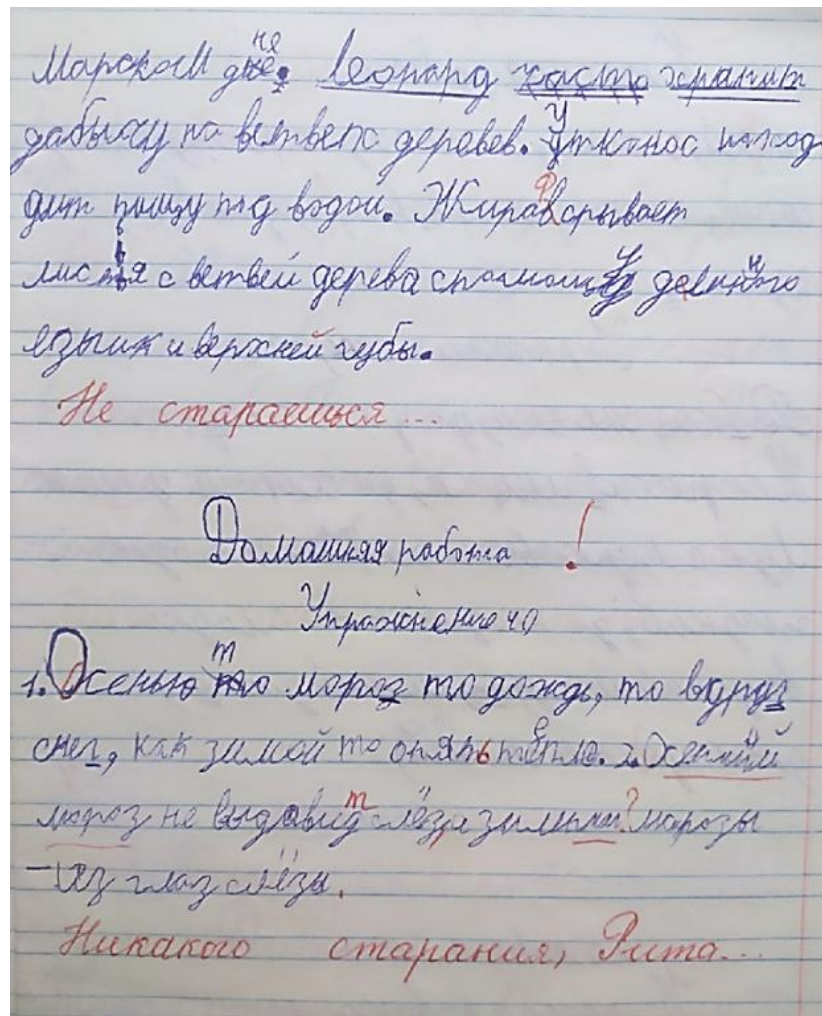 Марском дне. Леорард часто хранит
дабычу на ветвепс деревев. Утконос наход
дит пищу под водой. Жирафсрывает
листья с ветвей дерева спомощу деленого
языик и верхней губы.
Не стараешься...
Домашняя работа !
Упражнение 40
1. Осенью то мороз то дождь, то вдруг
снег, как зимой то опять тепло. 2. Осенний
мороз не выдавит слёз, а зимнии? марозы
- из глаз слёзы.
Никакого старания, Рита...